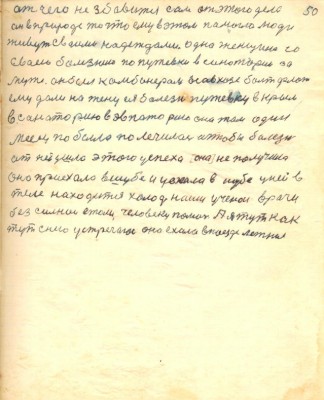 50
от чего не збавится сам от этого дело
он в природе то это ему в этом помогло люди
живут своими надеждами одна женщина со
своею болезнию по путевки в санаторию за
мужа он был комбайнерам в совхозе
ему дали на жену ея болезнь путевку в Крым
в санаторию в эвпаторию она там один
месец побыла полечилася чтобы болезнь
от ней ушла этого успеха она не получила
она приехала в шубе и уехала в шубе у ней в
теле находится холод наши ученои врачи
без силнои етому человеку помоч А я тут как
тут с нею устречаюс она ехала в поезде летнея